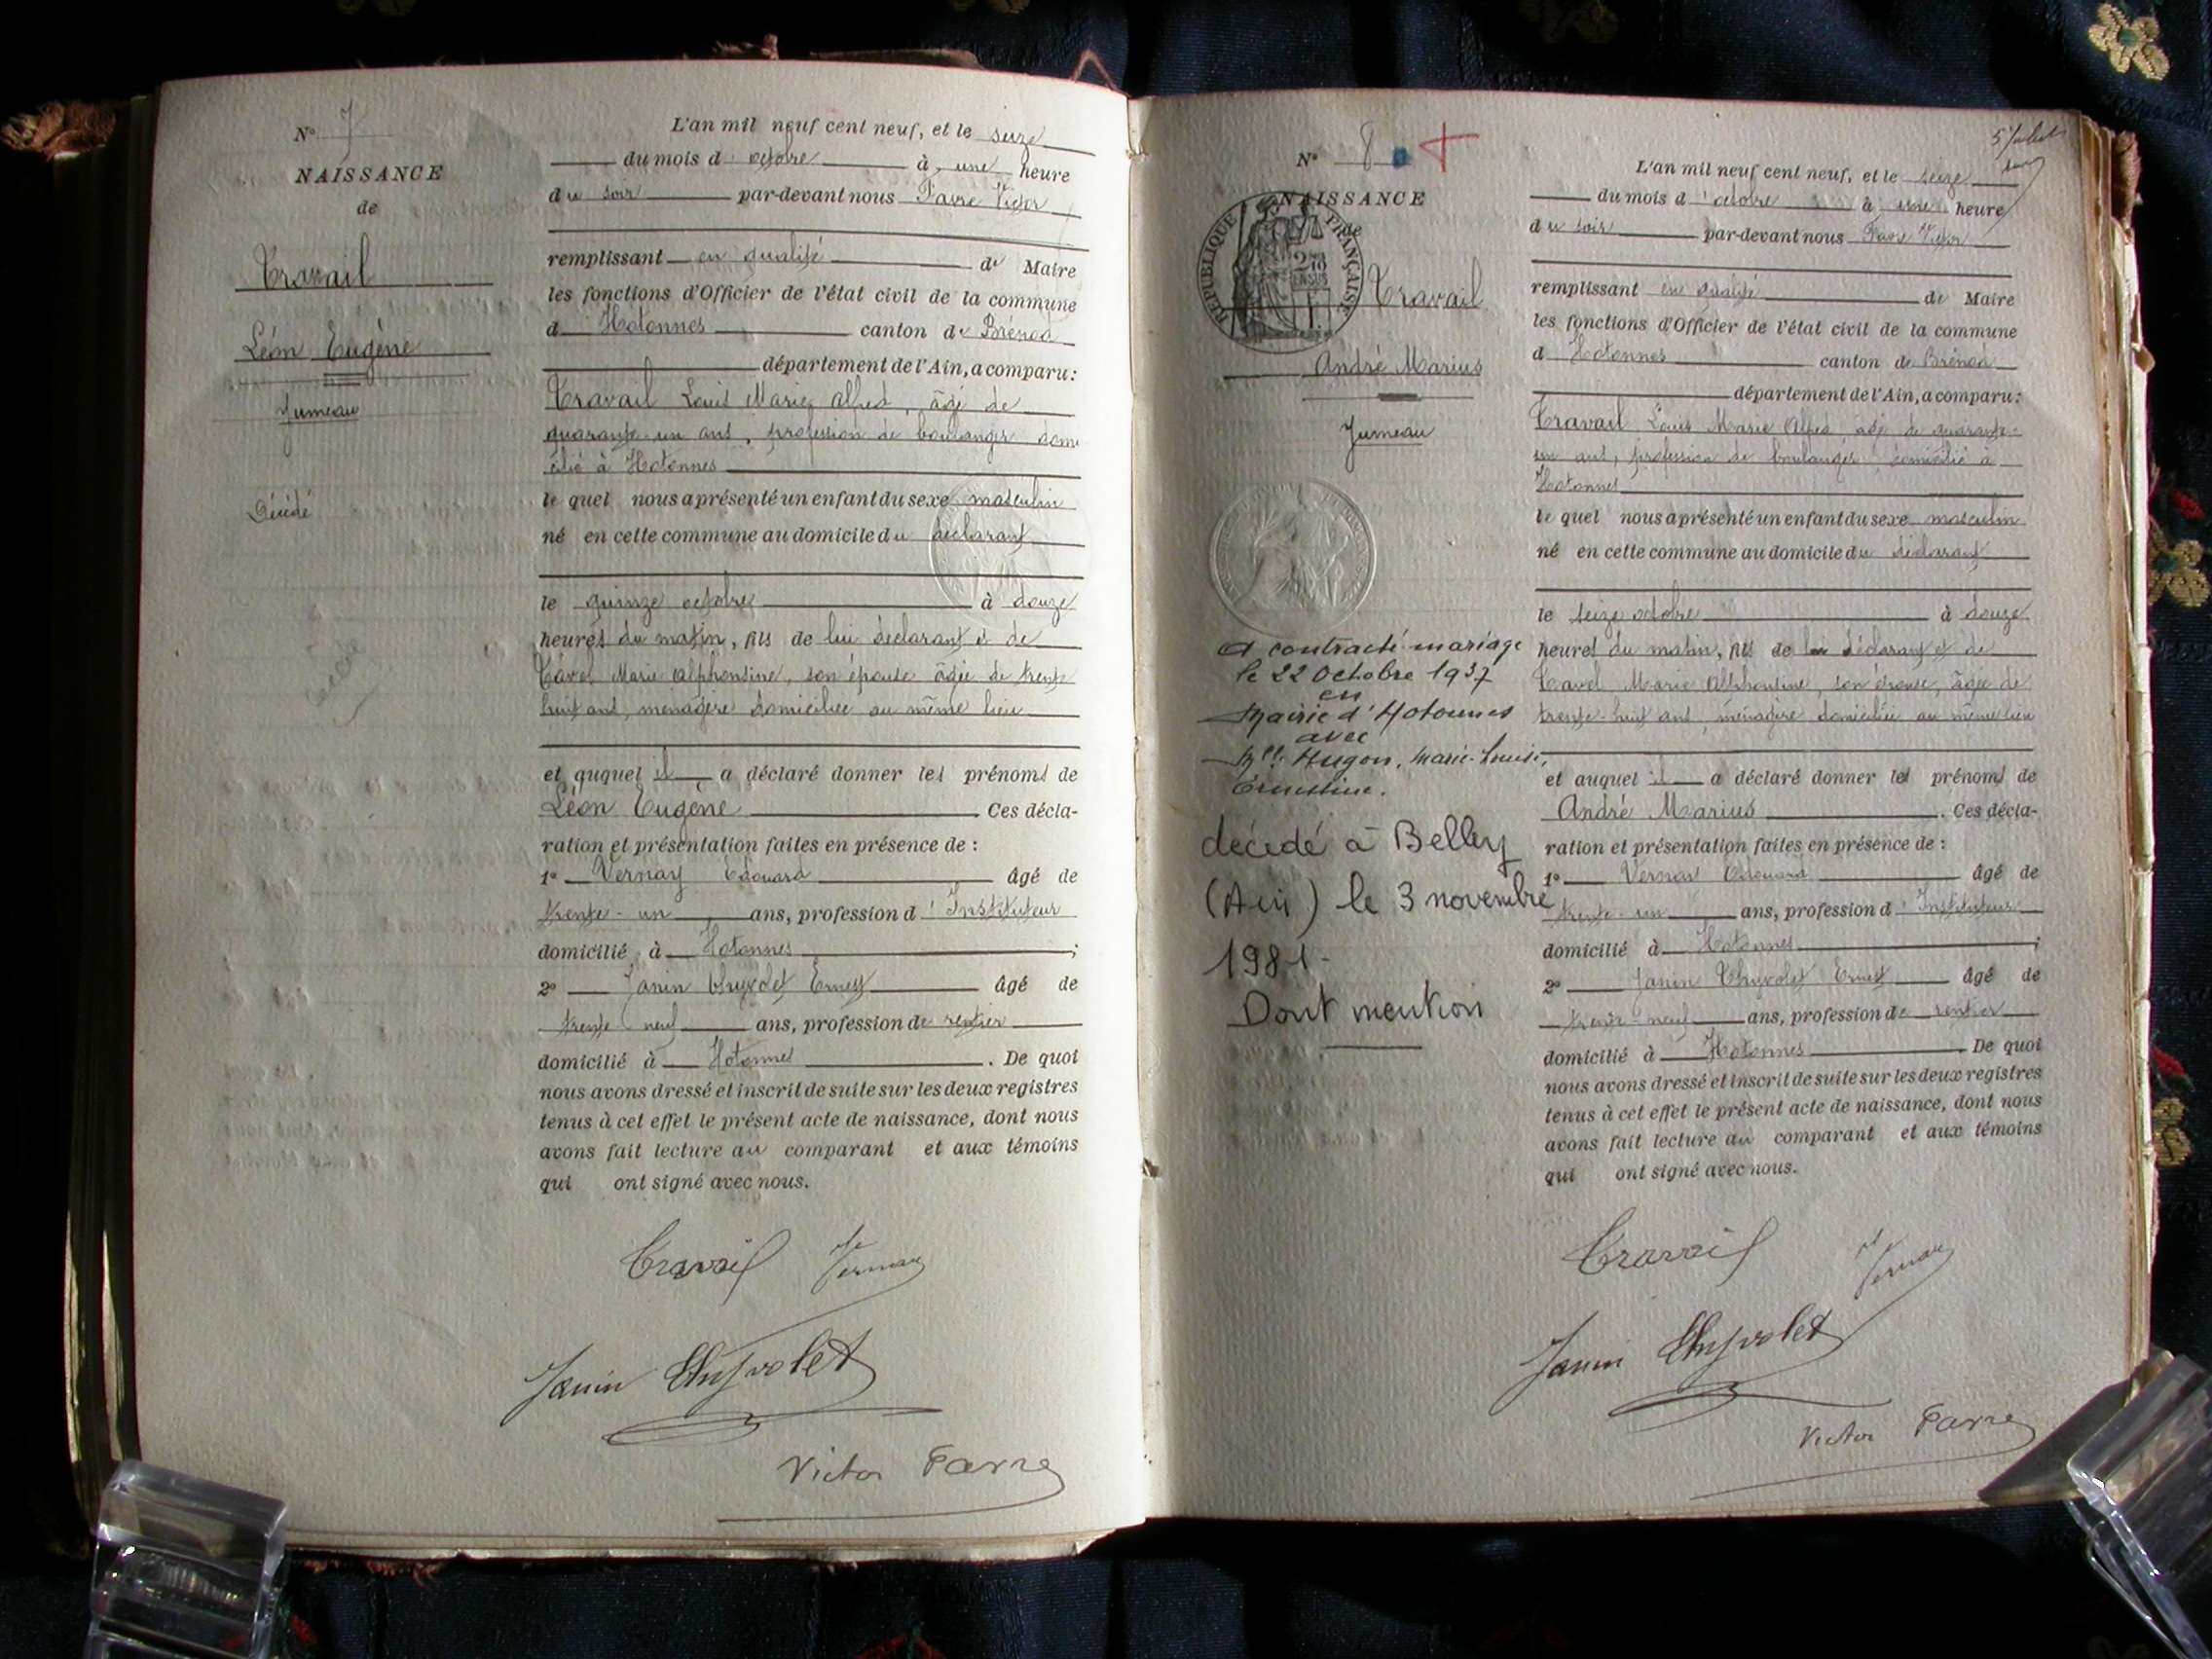 N° 7
NAISSANCE
de
Travail
Léon Eugène
Jumeau
Décédé
L'an mil neuf cent neuf, et le seize
du mois d'octobre à une heure
du soir par-devant nous Favre Victor
remplissant en qualité de Maire
les fonctions d'Officier de l'état civil de la commune
d Hotonnes canton de Brénod
département de l'Ain, a comparu :
Travail Louis Marie Alfred, âgé de
quarante-un ans, profession de boulanger domi
cilié à Hotonnes
le quel nous a présenté un enfant du sexe masculin
né en cette commune au domicile du déclarant
le quinze octobre à douze
heures du matin, fils de lui déclarant et de
Tavel Marie Alphonsine, son épouse âgée de trente
huit ans, ménagère domiciliée au même lieu
et auquel il a déclaré donner les prénoms de
Léon Eugène . Ces décla-
ration et présentation faites en présence de :
1° Vernay Edouard âgé de
trente-un ans, profession d'Instituteur
domicilié à Hotonnes ;
2° Janin Thyvolet Ernest âgé de
trente neuf ans, profession de rentier
domicilié à Hotonnes . De quoi
nous avons dressé et inscrit de suite sur les deux registres
tenus à cet effet le présent acte de naissance, dont nous
avons fait lecture au comparant et aux témoins
qui ont signé avec nous.
Travail Vernay
Janin Thyvolet
Victor Favre
5 Juillet
N° 8
NAISSANCE
de
RÉPUBLIQUE FRANÇAISE
Travail
André Marius
Jumeau
A contracté mariage
le 22 Octobre 1937
en
Mairie d'Hotonnes
avec
Mlle Hugon, Marie-Louise,
Ernestine.
décédé à Belley
(Ain) le 3 novembre
1981-
Dont mention
L'an mil neuf cent neuf, et le seize
du mois d'octobre à une heure
du soir par-devant nous Favre Victor
remplissant en qualité de Maire
les fonctions d'Officier de l'état civil de la commune
d Hotonnes canton de Brénod
département de l'Ain, a comparu :
Travail Louis Marie Alfred âgé de quarante-
un ans, profession de boulanger, domicilié à
Hotonnes
le quel nous a présenté un enfant du sexe masculin
né en cette commune au domicile du déclarant
le seize octobre à douze
heures du matin, fils de lui déclarant et de
Tavel Marie Alphonsine, son épouse, âgée de
trente-huit ans, ménagère domiciliée au même lieu
et auquel il a déclaré donner les prénoms de
André Marius . Ces décla-
ration et présentation faites en présence de :
1° Vernay Edouard âgé de
trente-un ans, profession d'Instituteur
domicilié à Hotonnes ;
2° Janin Thyvolet Ernest âgé de
trente-neuf ans, profession de rentier
domicilié à Hotonnes . De quoi
nous avons dressé et inscrit de suite sur les deux registres
tenus à cet effet le présent acte de naissance, dont nous
avons fait lecture au comparant et aux témoins
qui ont signé avec nous.
Travail Vernay
Janin Thyvolet
Victor Favre